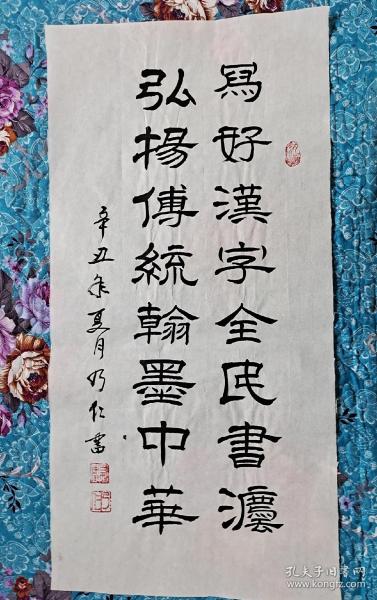 寫好漢字全民書灋
弘揚傳統翰墨中華
辛丑年夏月乃仁書
孔夫子旧书网
www.kongfz.com